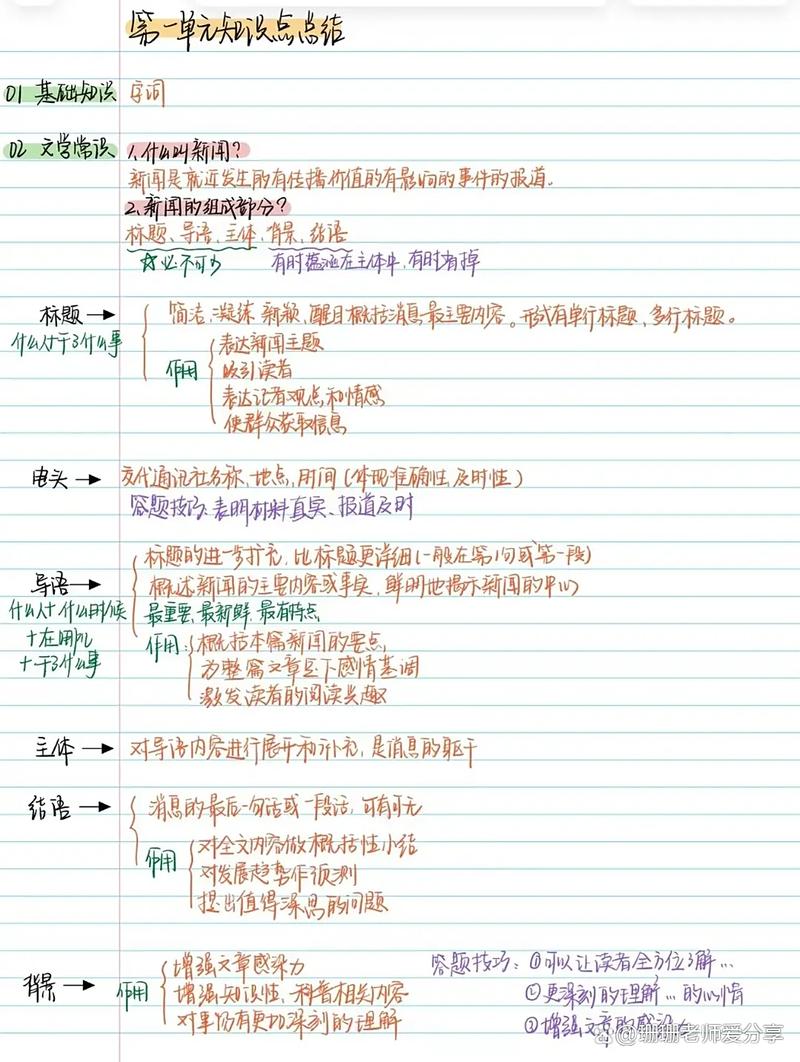 第一单元知识点总结
01 基础知识 字词
02 文学常识 1.什么叫新闻?
新闻是就近发生的有传播价值的有影响的事件的报道.
2.新闻的组成部分?
标题、导语、主体、背景、结语
☆必不可少 有时蕴涵在主体中,有时省掉
标题→ 简洁,凝练 新颖,醒目概括消息最主要内容。形式有单行标题,多行标题。
什么人干了什么事
作用
表达新闻主题
吸引读者
表达记者观点和情感
使群众获取信息
电头→ 交代通讯社名称,地点,时间(体现准确性,及时性)
答题技巧:表明材料真实、报道及时
导语→
标题的进一步扩充,比标题更详细(一般在第1句或第一段)
概述新闻的主要内容或事实,鲜明地揭示新闻的中心
什么人+什么时候
+在哪儿
+干了什么事
最重要,最新鲜,最有特点
作用:
概括本篇新闻的要点
为整篇文章定下感情基调
激发读者的阅读兴趣
主体→ 对导语内容进行展开和补充,是消息的躯干
结语→ 消息的最后一句话或一段话,可有可无
作用
对全文内容做概括性小结
对发展趋势作预测
提出值得深思的问题
背景→ 作用
增强文章感染力
增强知识性,科普相关内容
对事件有更加深刻的理解
答题技巧:①可以让读者全方位了解…
②更深刻的理解…的心情
③增强文章的感染力
@珊珊老师爱分享